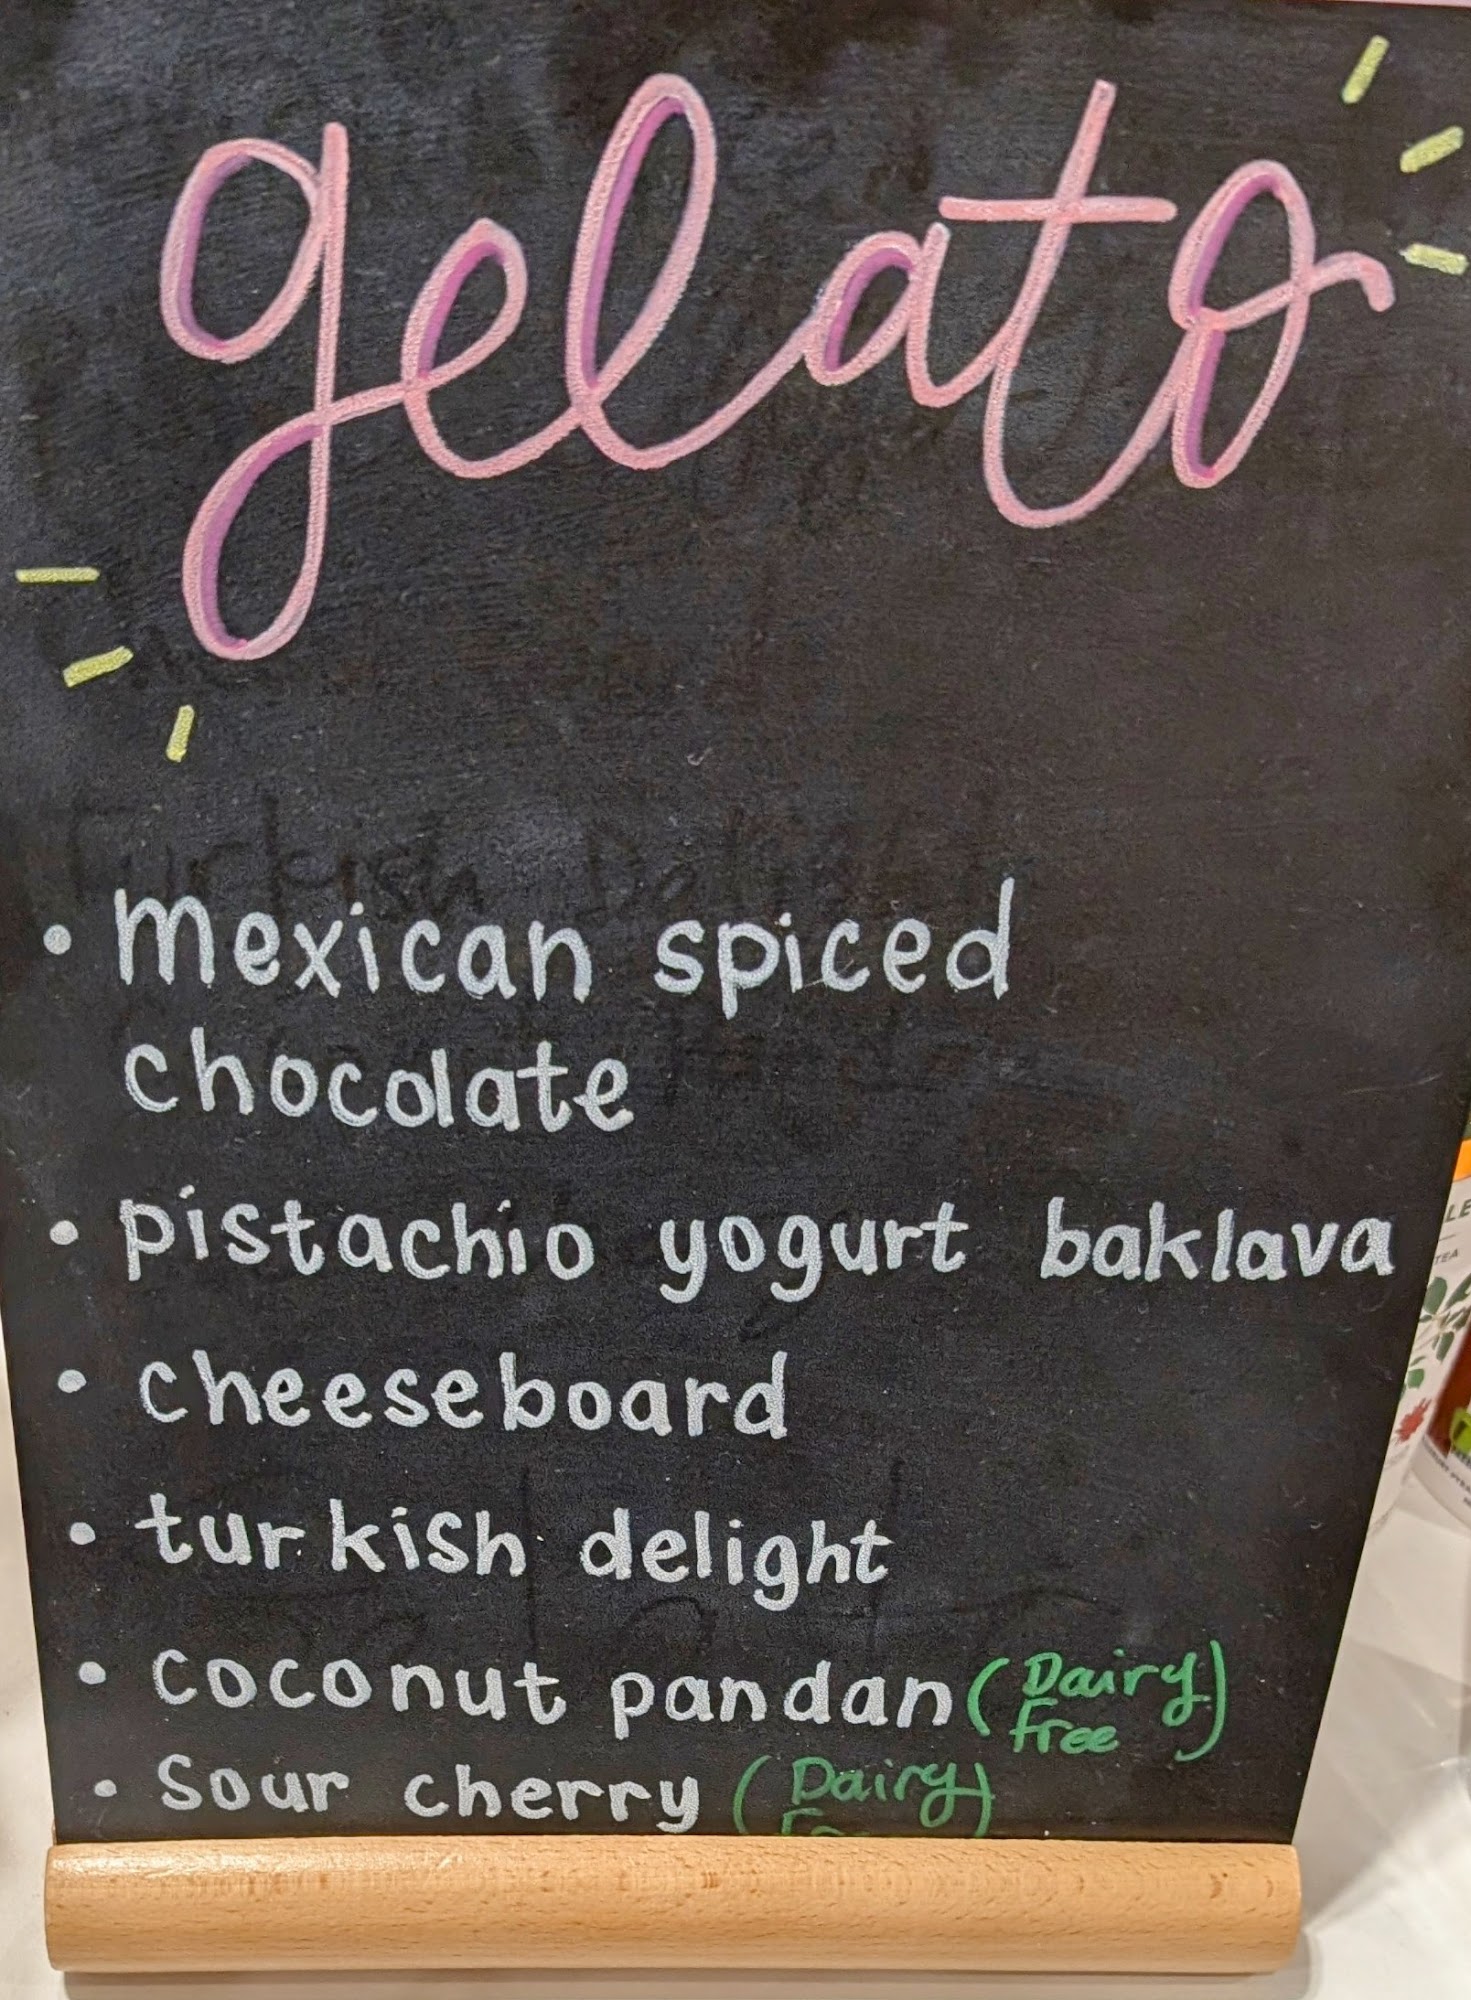 gelato
• mexican spiced
chocolate
• pistachio yogurt baklava
• cheeseboard
• turkish delight
• coconut pandan (Dairy
Free)
• Sour cherry (Dairy)
LE
TEA